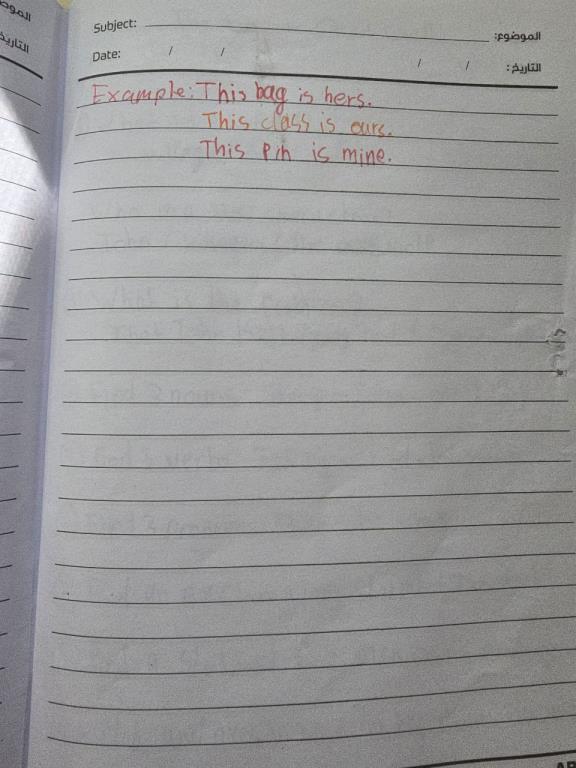 Subject: الموضوع:
Date: / / / / التاريخ:
Example: This bag is hers.
This class is ours.
This pin is mine.